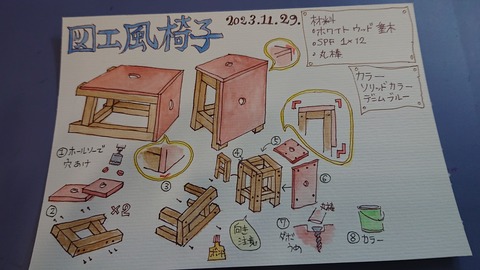 図工風椅子
2023.11.29.
材料
ホワイトウッド 垂木
SPF 1×12
丸棒
カラー
ソリッドカラー
デニムブルー
① ホールソーで
穴あけ
②
×2
③
④
⑤
⑥
向き
注意
ボンド
⑦
ダボ
うめ
丸棒
⑧ カラー